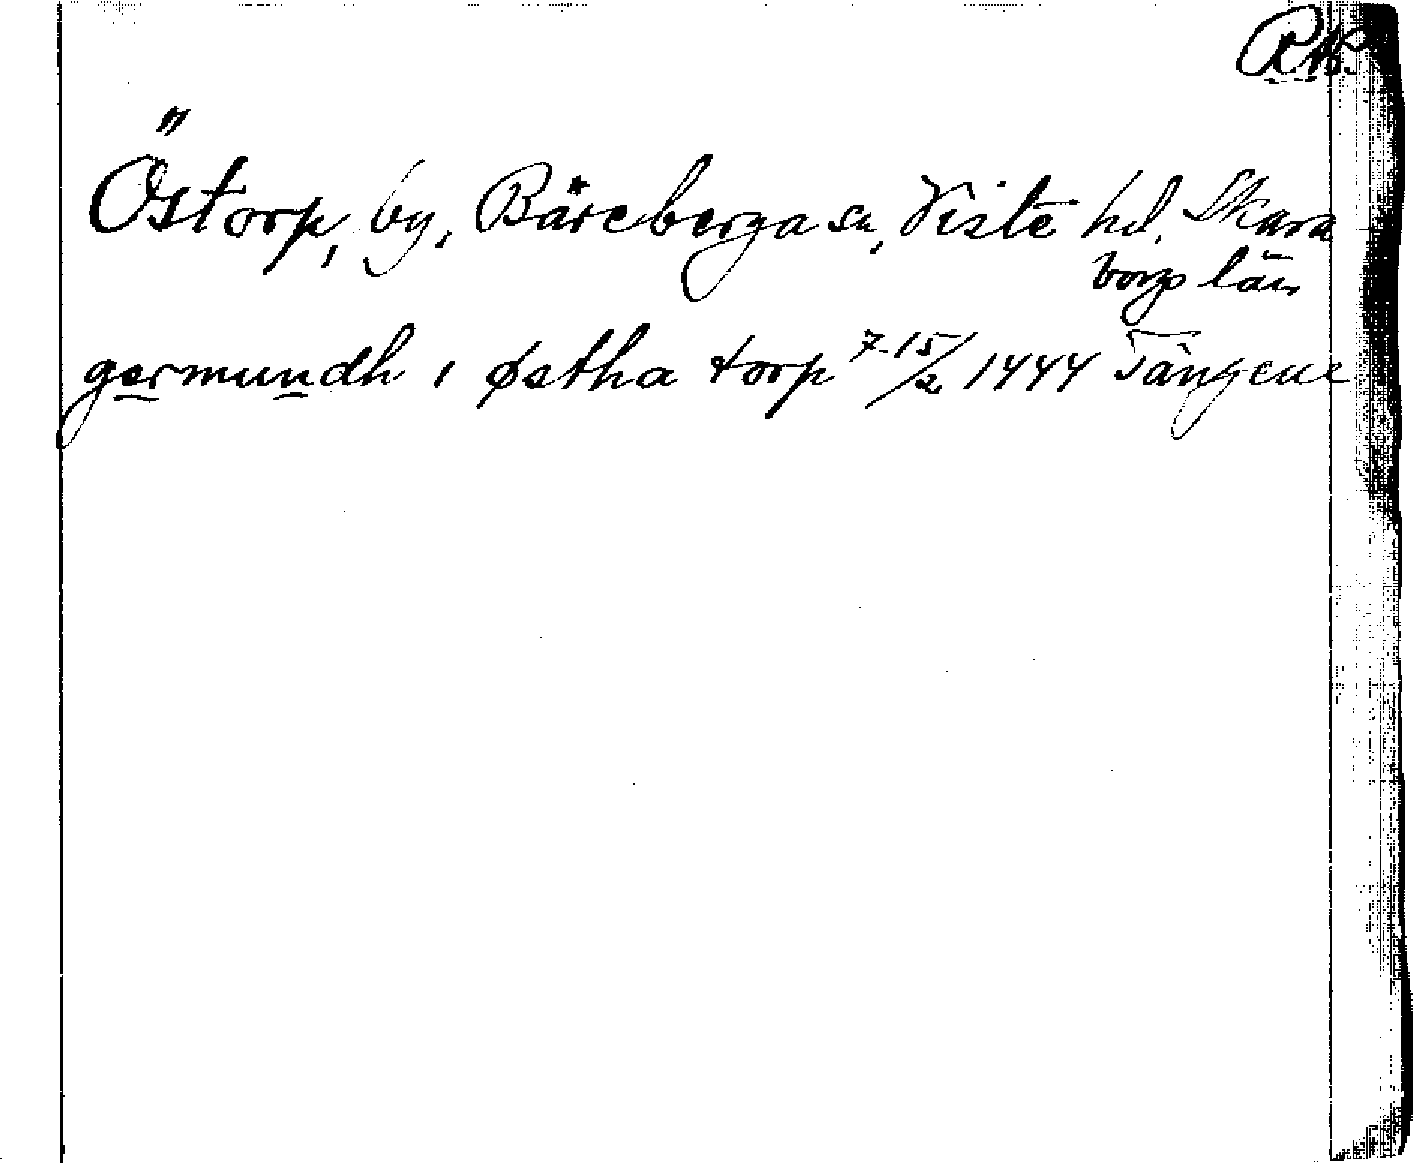 RAP.
Östorp, by, Bäreberga sn, Viste hd. Skara
borgs län
germundh i østha torp 7-15/2 1444 Tängene